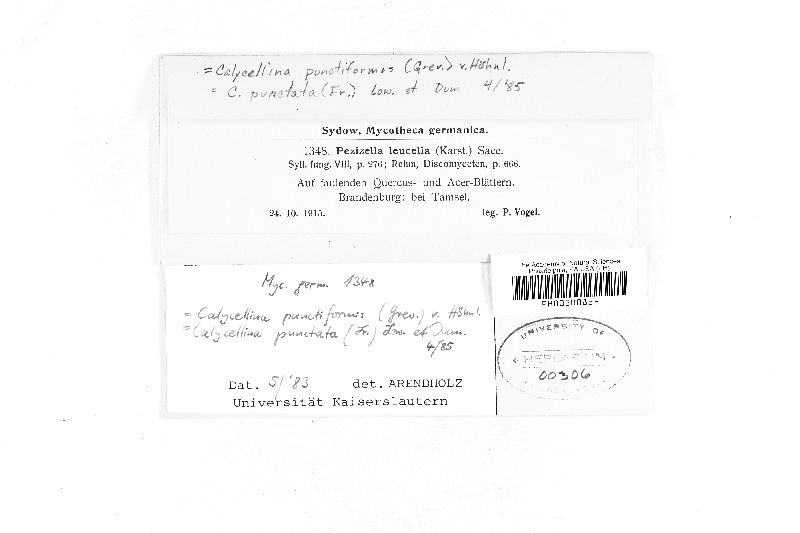 = Calycellina punctiformis (Grev.) v. Höhnl.
= C. punctata (Fr.) Low. et Dum 4/'85
Sydow, Mycotheca germanica.
1348. Pezizella leucelia (Karst.) Sacc.
Syll. fung. VIII, p. 276; Rehm, Discomyceten, p. 666.
Auf faulenden Quercus- und Acer-Blättern.
Brandenburg: bei Tamsel.
24. 10. 1915. leg. P. Vogel.
Myc. germ. 1348
= Calycellina punctiformis (Grev.) v. Höhnl.
= Calycellina punctata (Fr.) Low. et Dum.
4/85
Dat. 5/'83 det. ARENDHOLZ
Universität Kaiserslautern
Academy of Natural Sciences
UNIVERSITY OF
HERBARIUM
00306